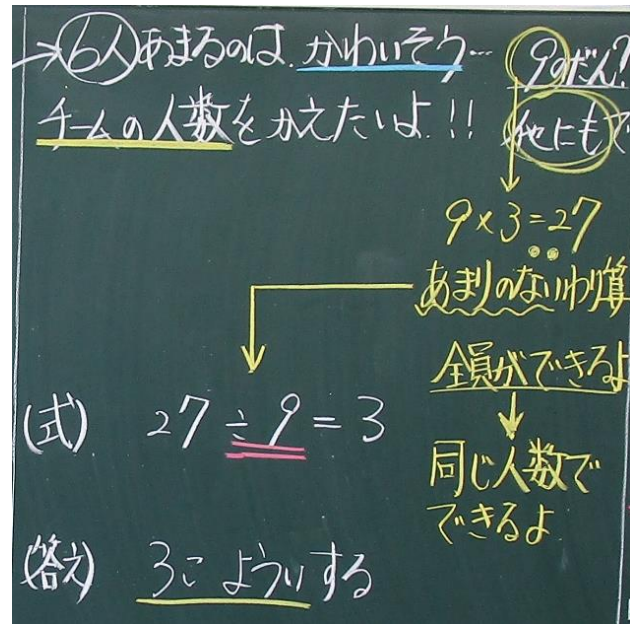 →6人あまるのは、かわいそう…
チームの人数をかえたいよ!!
9のだん?
他にもで
9×3=27
あまりのないわり算
全員ができるよ
同じ人数で
できるよ
(式) 27÷9=3
(答え) 3こ よういする